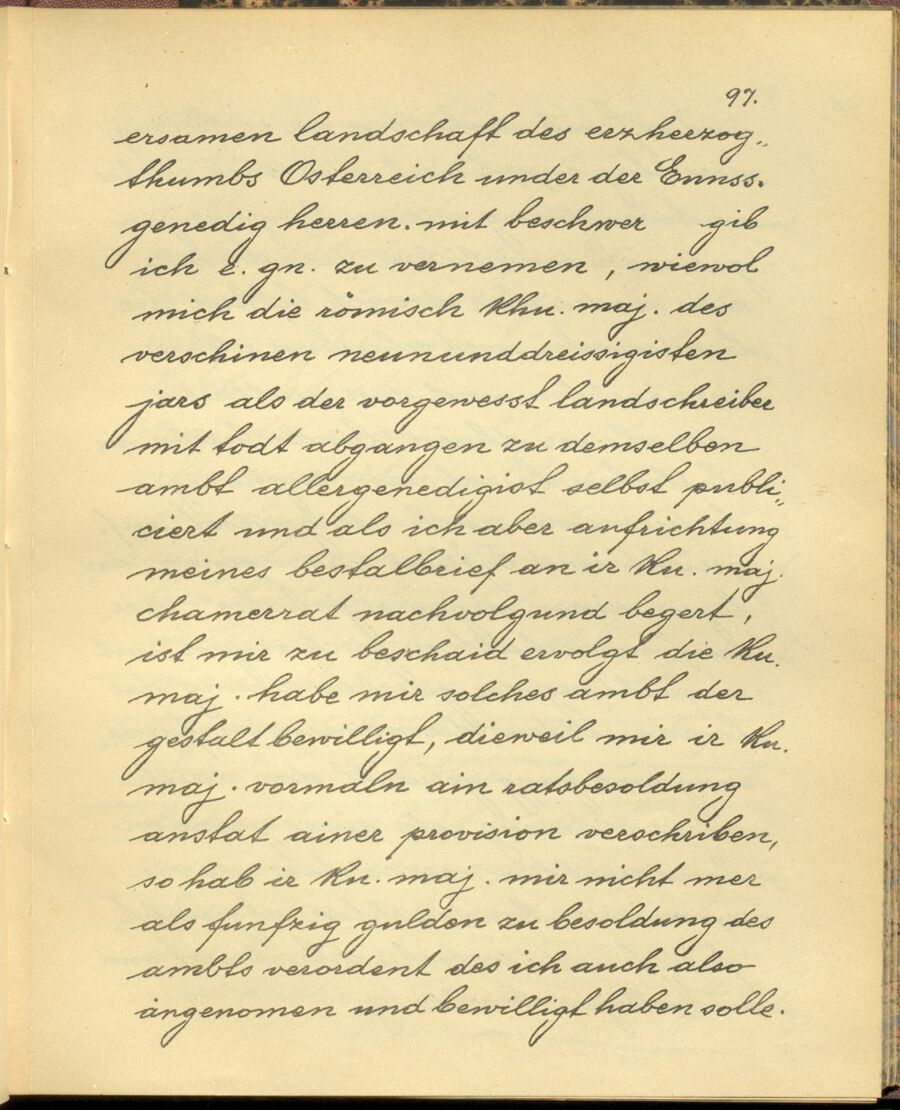 97.
ersamen landschaft des erzherzog„
thumbs Osterreich under der Ennss.
genedig herren. mit beschwer gib
ich e. gn. zu vernemen, wiewol
mich die römisch khu. maj. des
verschinen neununddreissigisten
jars als der vorgewesst landschreiber
mit todt abgangen zu demselben
ambt allergenedigist selbst publi„
ciert und als ich aber aufrichtung
meines bestalbrief an ir ku. maj.
chamerrat nachvolgund begert,
ist mir zu beschaid ervolgt die ku.
maj. habe mir solches ambt der
gestalt bewilligt, dieweil mir ir ku.
maj. vormaln ain ratsbesoldung
anstat ainer provision verschriben,
so hab ir ku. maj. mir nicht mer
als funfzig gulden zu besoldung des
ambts verordent des ich auch also
angenomen und bewilligt haben solle.